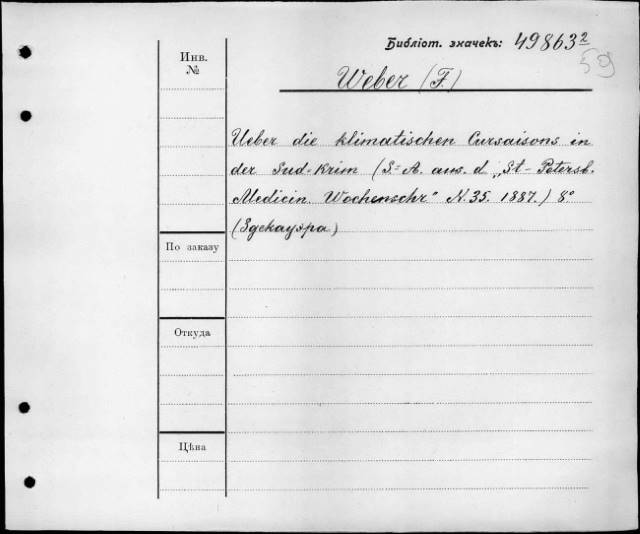 Библіот. значекъ: 49863²
50
Weber (F.)
Инв.
№
Ueber die klimatischen Cursaisons in
der Sud-Krim (S=A. aus. d. „St-Petersb.
Medicin. Wochenschr" N. 35. 1887.) 8°
По заказу
Откуда
Цѣна